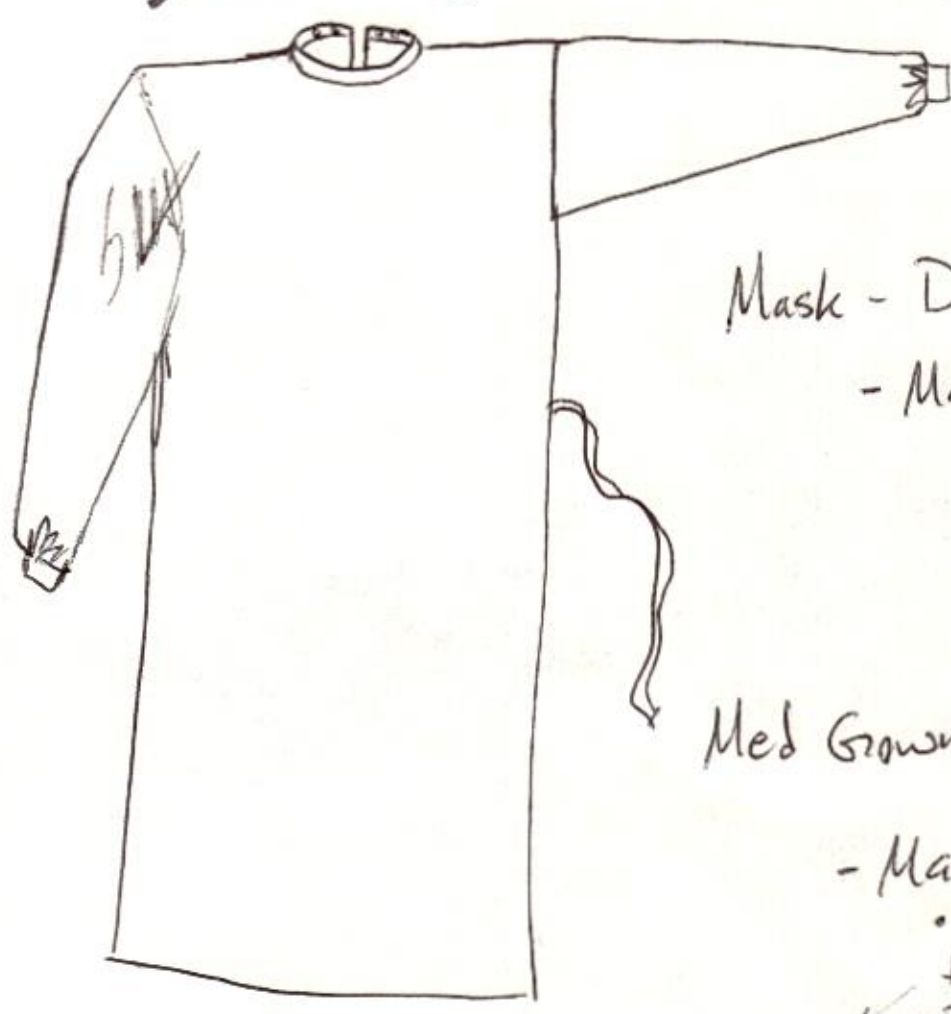 Mask - D
- Ma
Med Gown
- Ma